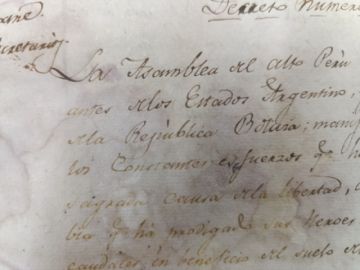 Decreto Numero
La Asamblea del Alto Perú
antes delos Estados Argentino,
dela República Boliva; manif
los Constantes esfuerzos q.
sagrada causa dela libertad,
bia q. há prodigad sus Heroes
caudales, en beneficio del suelo